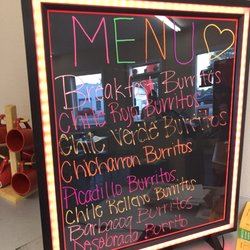 MENU
Breakfast Burritos
Chile Rojo Burritos
Chile Verde Burritos
Chicharron Burritos
Picadillo Burritos
Chile Relleno Burritos
Barbacoa Burritos
Desebrada Burrito